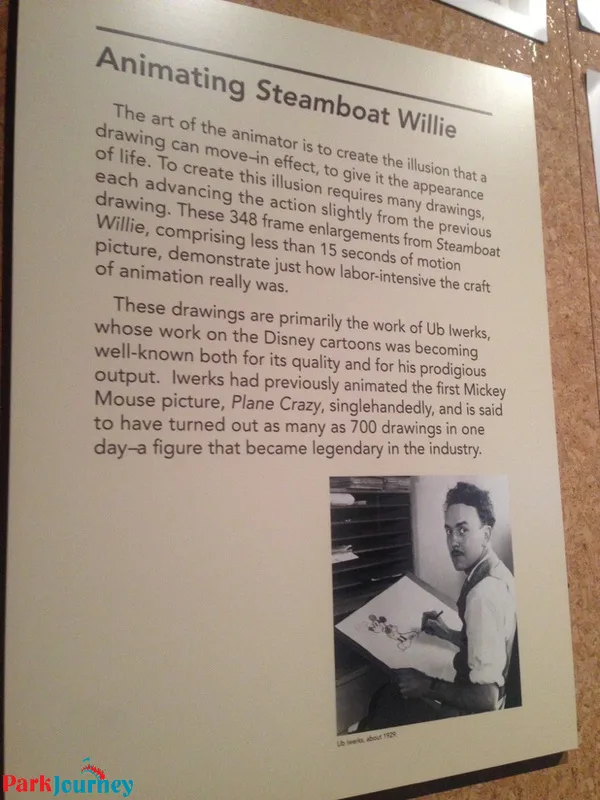 Animating Steamboat Willie
The art of the animator is to create the illusion that a
drawing can move–in effect, to give it the appearance
of life. To create this illusion requires many drawings,
each advancing the action slightly from the previous
drawing. These 348 frame enlargements from Steamboat
Willie, comprising less than 15 seconds of motion
picture, demonstrate just how labor-intensive the craft
of animation really was.
These drawings are primarily the work of Ub Iwerks,
whose work on the Disney cartoons was becoming
well-known both for its quality and for his prodigious
output. Iwerks had previously animated the first Mickey
Mouse picture, Plane Crazy, singlehandedly, and is said
to have turned out as many as 700 drawings in one
day–a figure that became legendary in the industry.
Ub Iwerks, about 1929.
ParkJourney